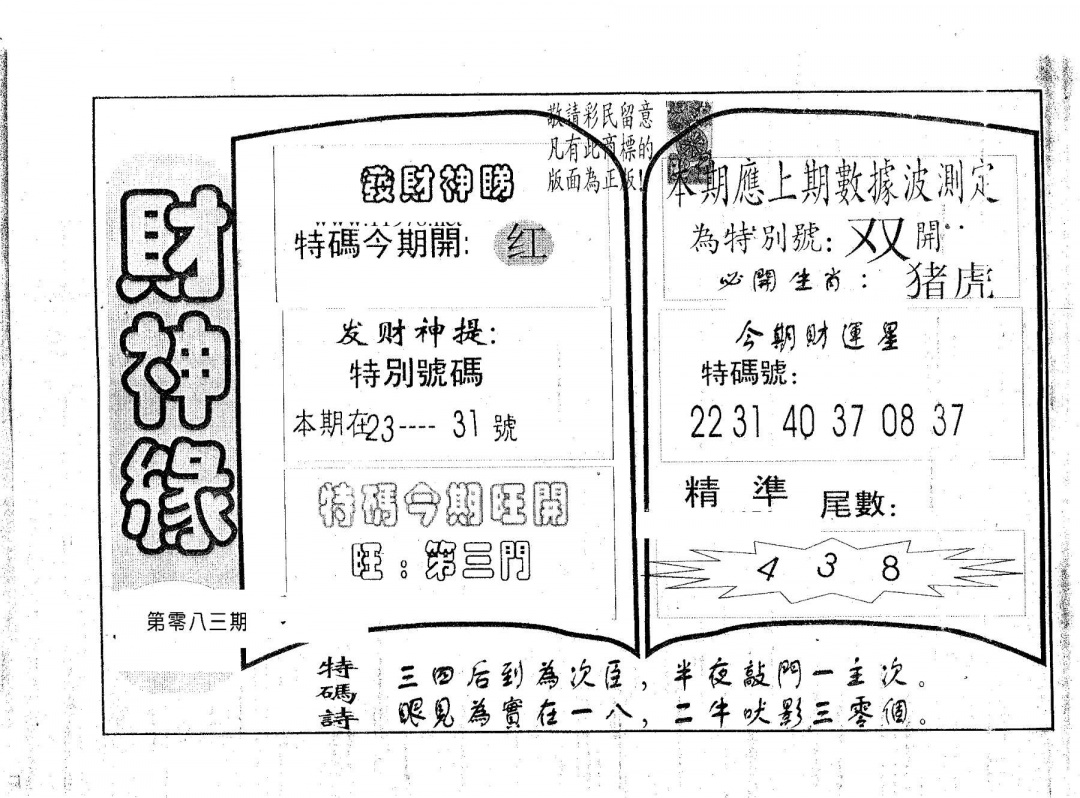 財神緣
第零八三期
敬請彩民留意
凡有此商標的
版面為正版!
發財神睇
特碼今期開: 红
发财神提:
特別號碼
本期在23---- 31 號
特碼今期旺開
旺:第三門
本期應上期數據波測定
為特別號: 双 開
必開生肖: 猪虎
今期財運星
特碼號:
22 31 40 37 08 37
精準 尾數:
4 3 8
特碼詩
三四后到為次臣,半夜敲門一主次。
眼見為實在一八,二牛吠影三零個。